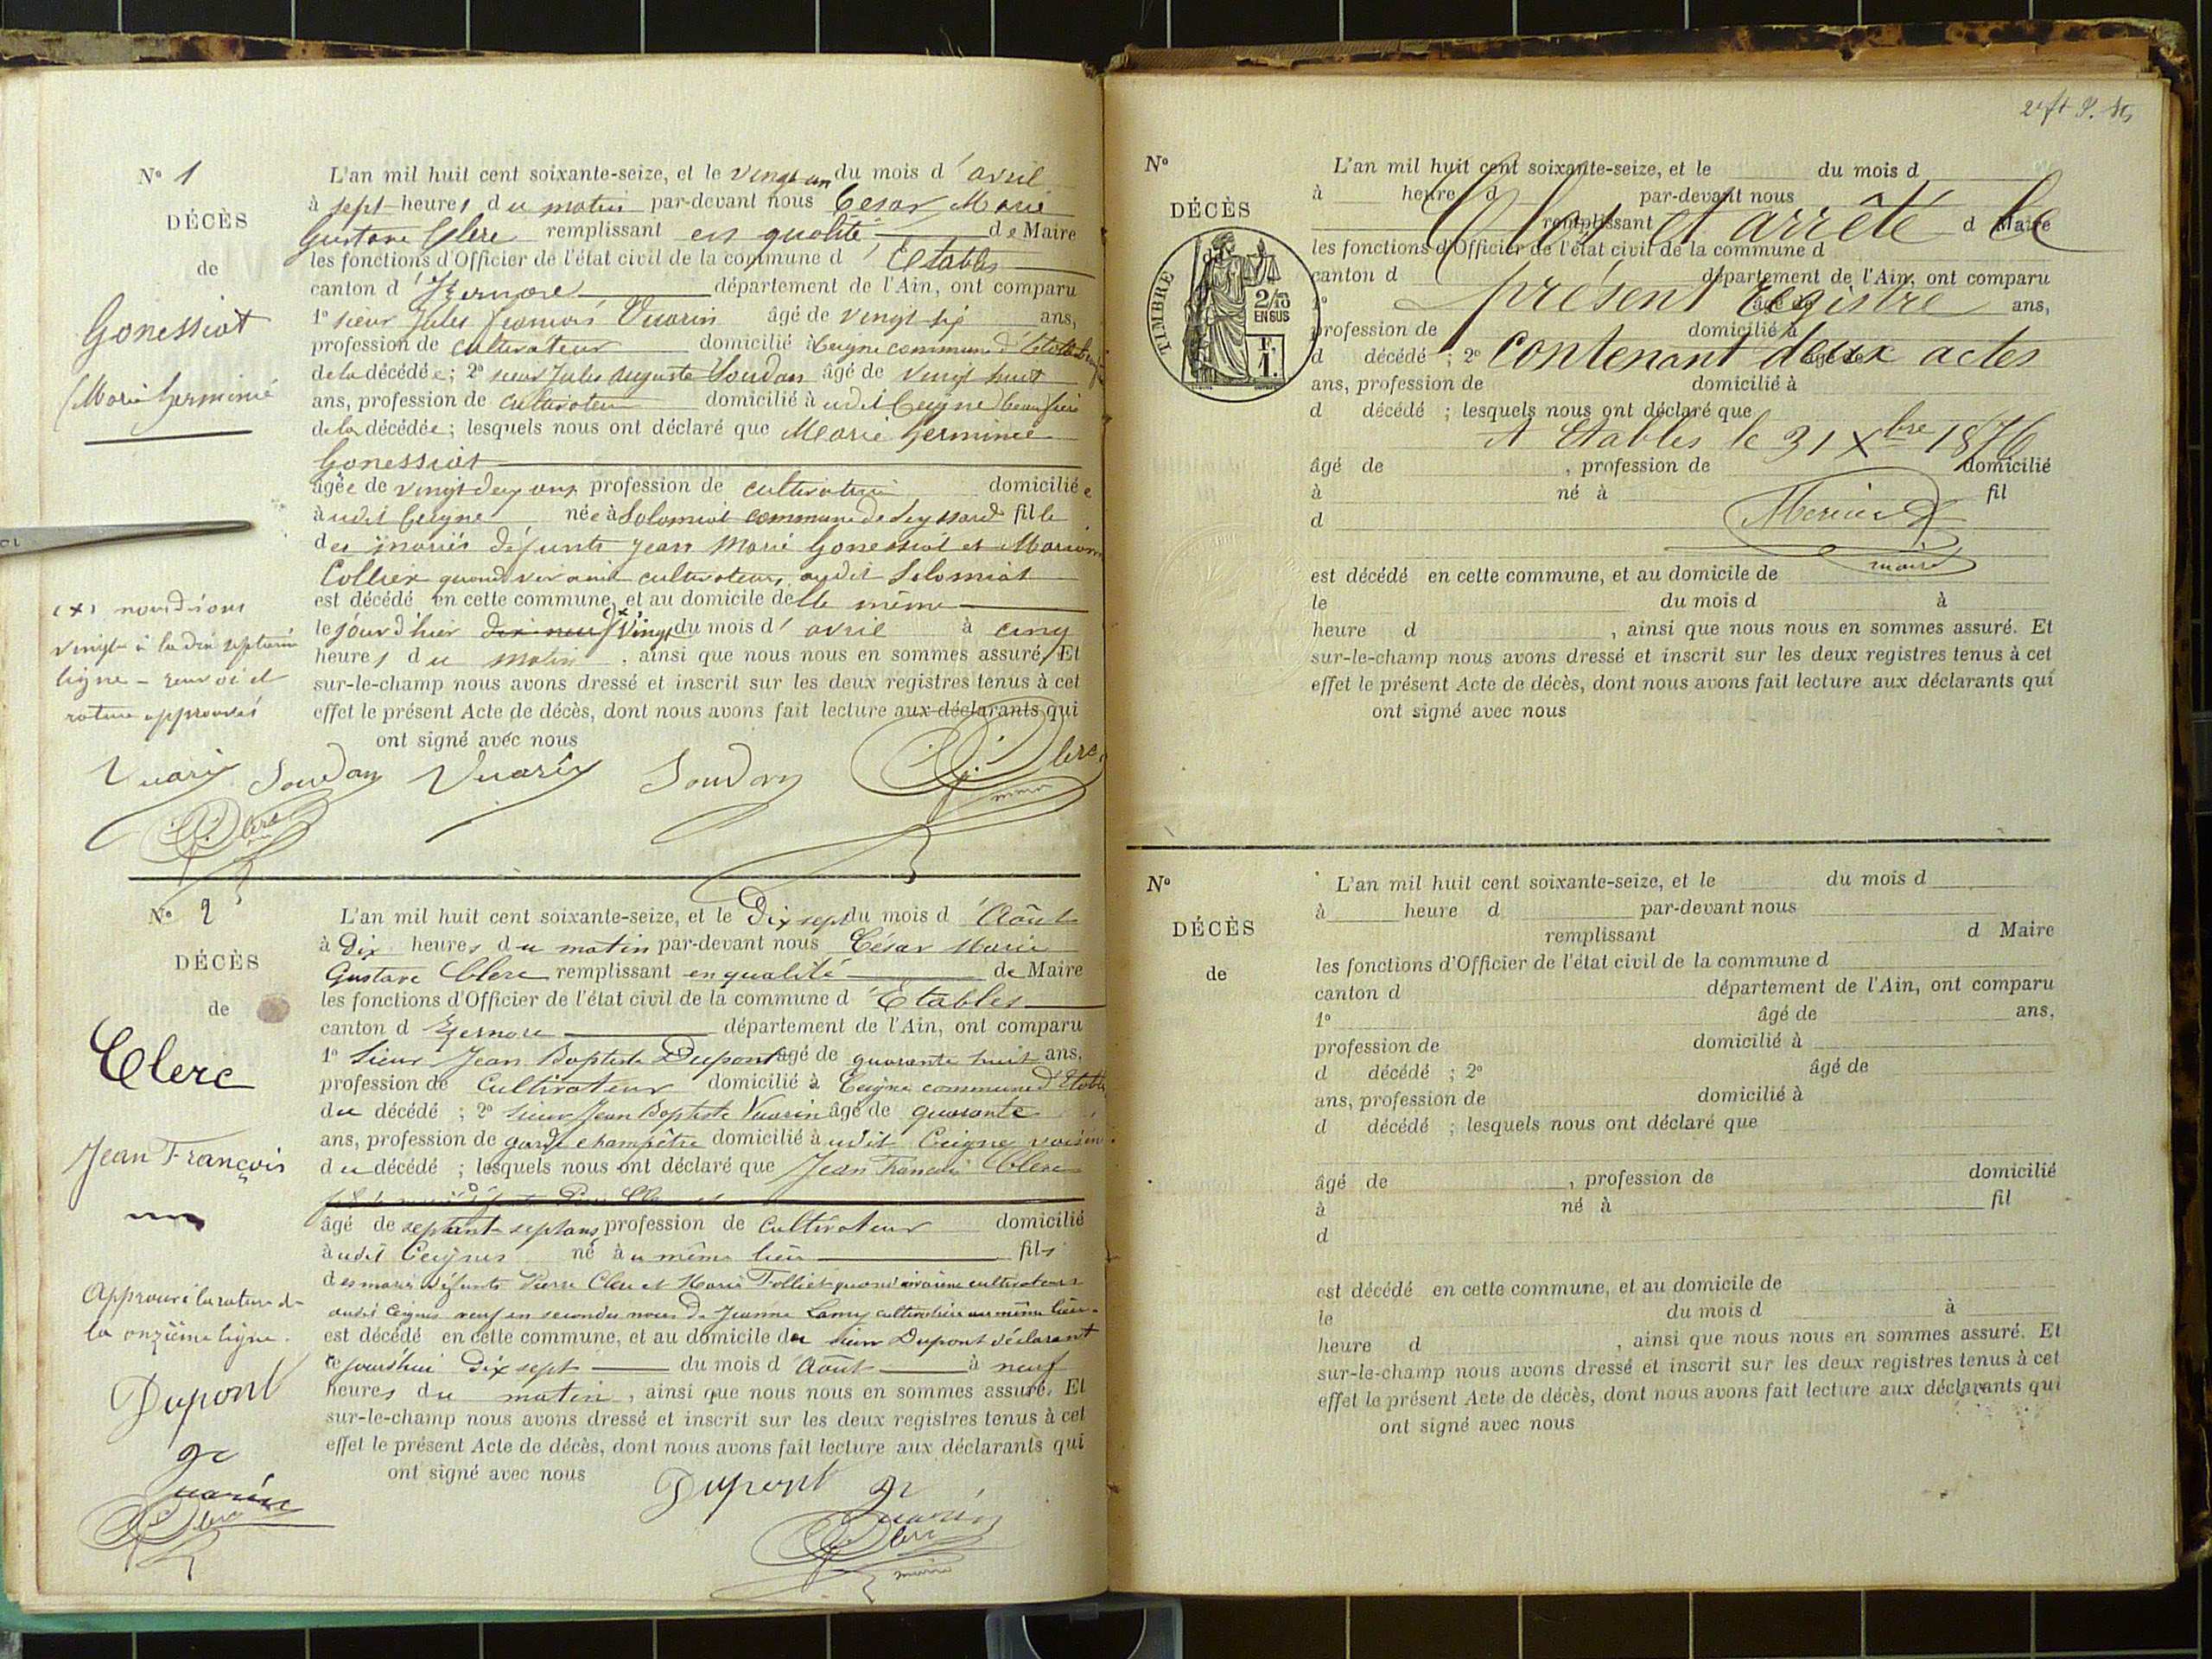 Nº 1
DÉCÈS
de
Gonessiat
Marie Herminie
L'an mil huit cent soixante-seize, et le vingt un du mois d' avril
à sept heures du matin par-devant nous César Marie
Gustave Clerc remplissant en qualité de Maire
les fonctions d'Officier de l'état civil de la commune d' Etables
canton d' Izernore département de l'Ain, ont comparu
1º sieur Jules François Vuarin âgé de vingt six ans,
profession de cultivateur domicilié à Ceigne commune d'Etables
de la décédée ; 2º sieur Jules Auguste Soudan âgé de vingt huit
ans, profession de cultivateur domicilié à udit Ceigne beau frère
de la décédée ; lesquels nous ont déclaré que Marie Herminie
Gonessiat
âgée de vingt deux ans profession de cultivatrice domiciliée
à udit Ceigne née à Solomiat commune de Leyssard fille
des mariés défunts Jean Marie Gonessiat et
Collier quand vivaient cultivateurs audit Solomiat
est décédé en cette commune, et au domicile d elle même
le jour d'hier dix neuf (x) vingt du mois d' avril à cinq
heures du matin, ainsi que nous nous en sommes assuré. Et
sur-le-champ nous avons dressé et inscrit sur les deux registres tenus à cet
effet le présent Acte de décès, dont nous avons fait lecture aux déclarants qui
ont signé avec nous
(x) nous disons
vingt à la dix septième
ligne - renvoi et
rature approuvés
Vuarin Soudan Vuarin Soudan Clerc
maire
Clerc
Nº 2
DÉCÈS
de
Clerc
Jean François
L'an mil huit cent soixante-seize, et le Dix sept du mois d' Août
à Dix heures du matin par-devant nous César Marie
Gustave Clerc remplissant en qualité de Maire
les fonctions d'Officier de l'état civil de la commune d' Etables
canton d Izernore département de l'Ain, ont comparu
1º Sieur Jean Baptiste Dupont âgé de quarante huit ans,
profession de Cultivateur domicilié à Ceigne commune d'Etables
du décédé ; 2º Sieur Jean Baptiste Vuarin âgé de quarante
ans, profession de garde champêtre domicilié à udit Ceigne voisin
du décédé ; lesquels nous ont déclaré que Jean François Clerc
âgé de septante sept ans profession de Cultivateur domicilié
à udit Ceignes né au même lieu fils
des mariés défunts Pierre Clerc et Marie Folliet quand vivaient cultivateurs
audit Ceignes veuf en secondes noces de Jeanne Lamy cultivatrice au même lieu.
est décédé en cette commune, et au domicile du sieur Dupont déclarant
ce jourd'hui dix sept du mois d' Août à neuf
heures du matin, ainsi que nous nous en sommes assuré. Et
sur-le-champ nous avons dressé et inscrit sur les deux registres tenus à cet
effet le présent Acte de décès, dont nous avons fait lecture aux déclarants qui
ont signé avec nous
Approuvé la rature de
la onzième ligne.
Dupont
Vuarin
Clerc
Dupont
Vuarin
Clerc
maire
Nº
DÉCÈS
TIMBRE
2/10 EN SUS
F. 1.
L'an mil huit cent soixante-seize, et le du mois d
à heure d par-devant nous
remplissant d Maire
les fonctions d'Officier de l'état civil de la commune d
canton d département de l'Ain, ont comparu
1º âgé de ans,
profession de domicilié à
d décédé ; 2º âgé de
ans, profession de domicilié à
d décédé ; lesquels nous ont déclaré que
âgé de , profession de domicilié
à né à fil
d
est décédé en cette commune, et au domicile de
le du mois d à
heure d , ainsi que nous nous en sommes assuré. Et
sur-le-champ nous avons dressé et inscrit sur les deux registres tenus à cet
effet le présent Acte de décès, dont nous avons fait lecture aux déclarants qui
ont signé avec nous
Clos et arrêté le
présent registre
contenant deux actes
A Etables le 31 Xbre 1876
maire
Nº
DÉCÈS
de
L'an mil huit cent soixante-seize, et le du mois d
à heure d par-devant nous
remplissant d Maire
les fonctions d'Officier de l'état civil de la commune d
canton d département de l'Ain, ont comparu
1º âgé de ans,
profession de domicilié à
d décédé ; 2º âgé de
ans, profession de domicilié à
d décédé ; lesquels nous ont déclaré que
âgé de , profession de domicilié
à né à fil
d
est décédé en cette commune, et au domicile de
le du mois d à
heure d , ainsi que nous nous en sommes assuré. Et
sur-le-champ nous avons dressé et inscrit sur les deux registres tenus à cet
effet le présent Acte de décès, dont nous avons fait lecture aux déclarants qui
ont signé avec nous